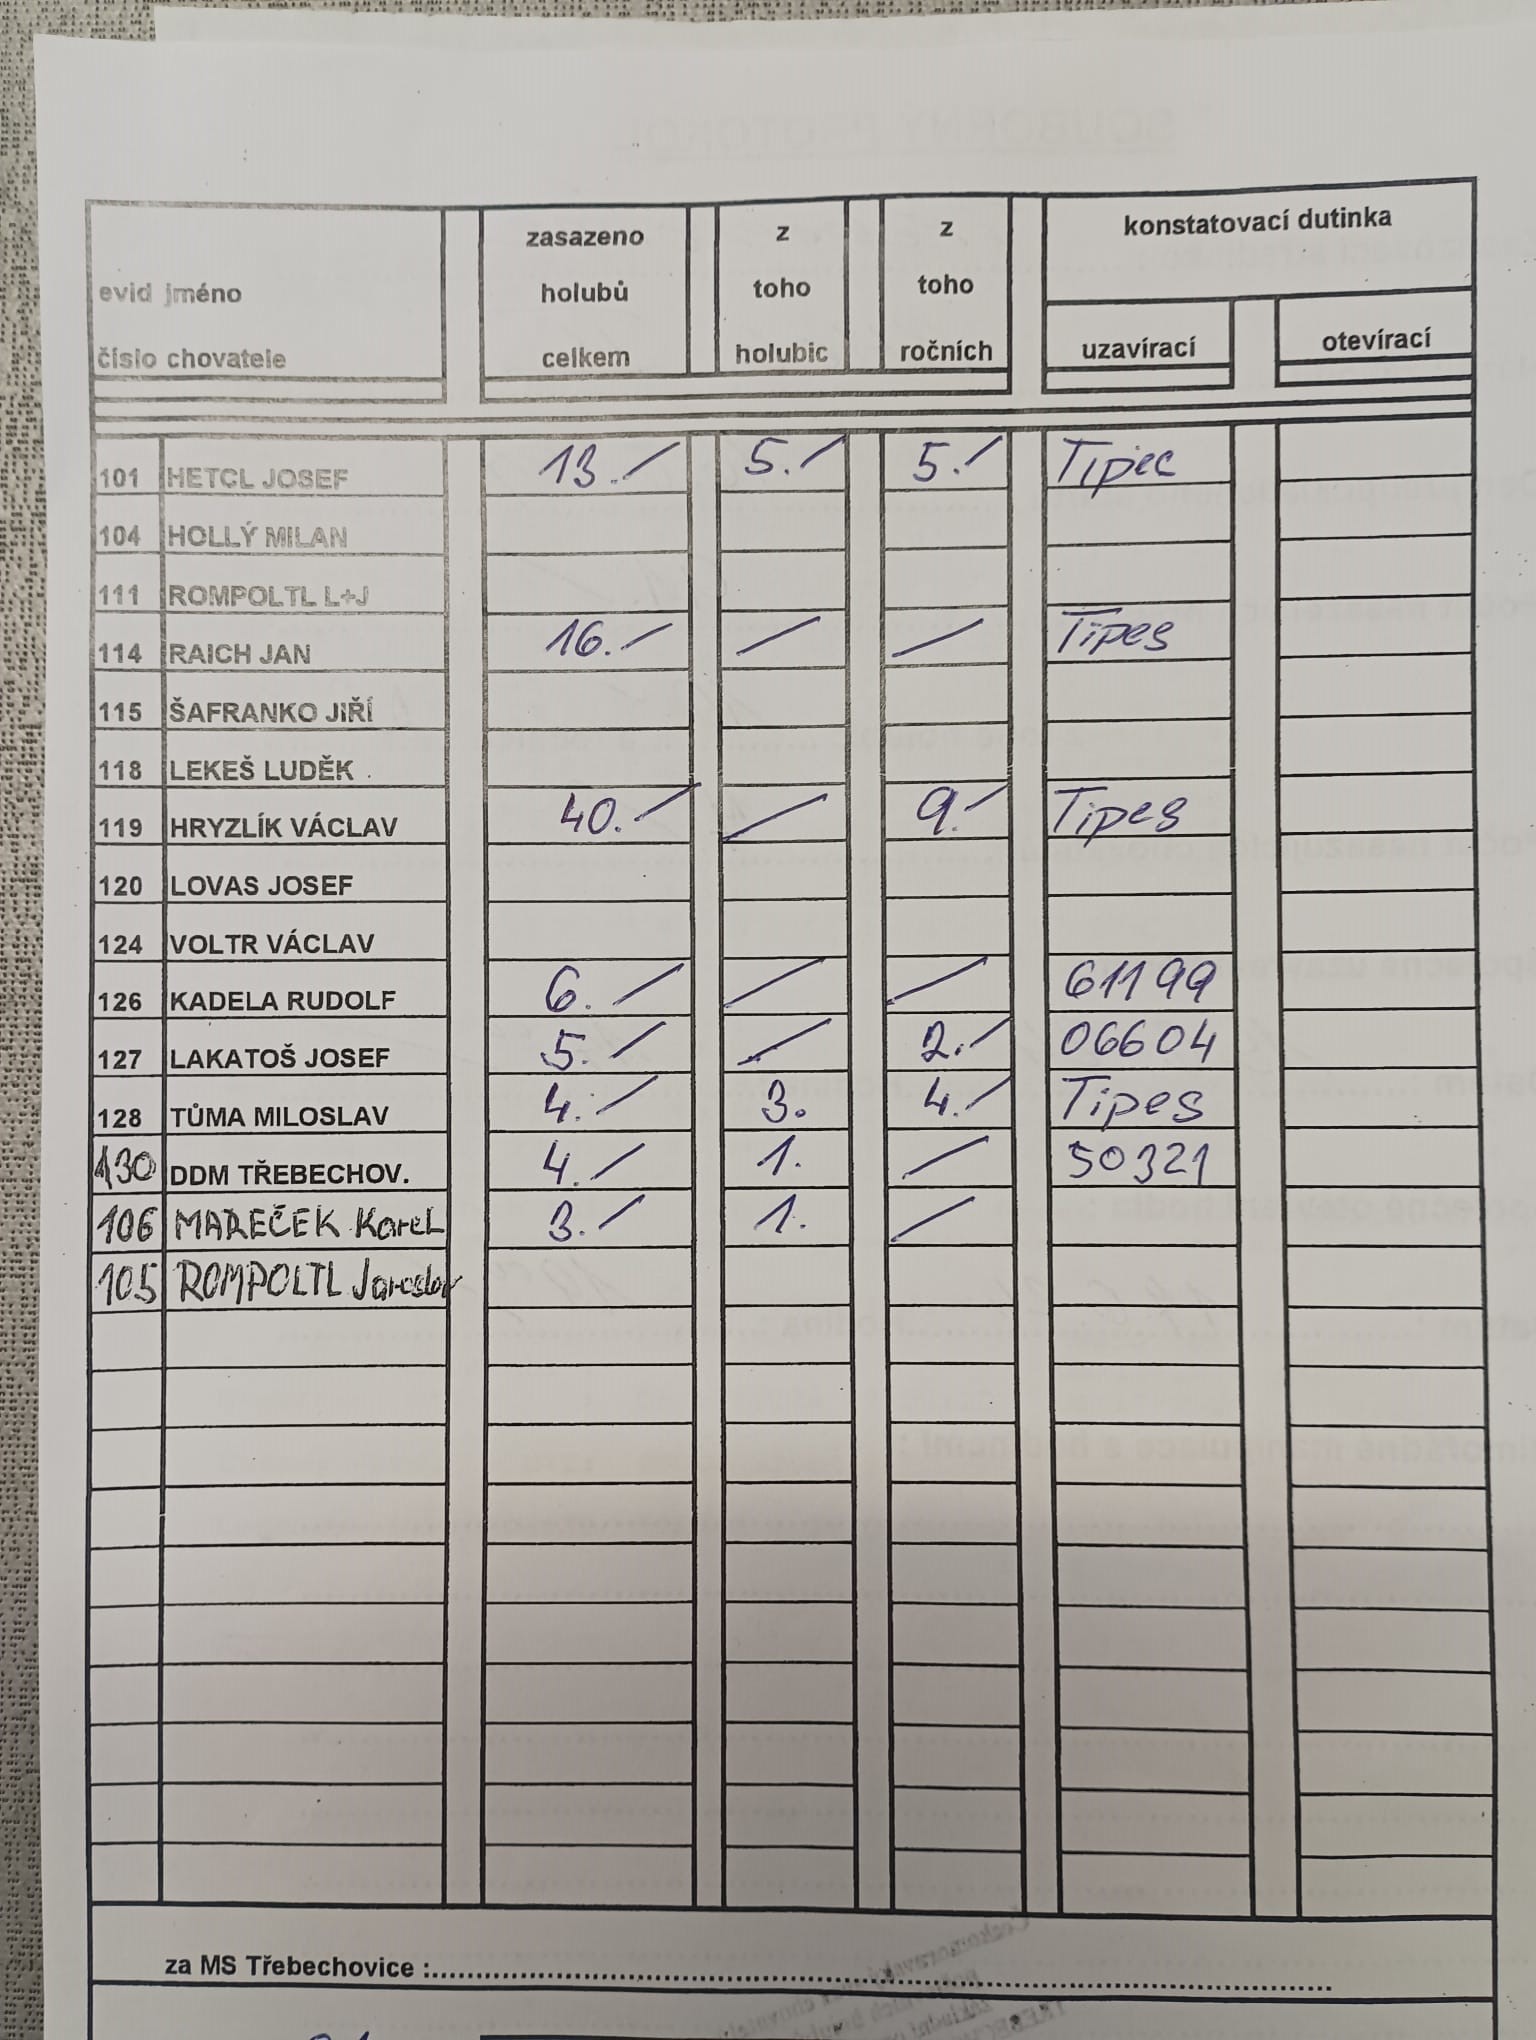 zasazeno z z konstatovací dutinka
evid jméno holubů toho toho
číslo chovatele celkem holubic ročních uzavírací otevírací
101 HETCL JOSEF 13./ 5./ 5./ Tipec
104 HOLLÝ MILAN
111 ROMPOLTL L+J
114 RAICH JAN 16./ / / Tipes
115 ŠAFRANKO JIŘÍ
118 LEKEŠ LUDĚK
119 HRYZLÍK VÁCLAV 40./ / 9./ Tipes
120 LOVAS JOSEF
124 VOLTR VÁCLAV
126 KADELA RUDOLF 6./ / / 61199
127 LAKATOŠ JOSEF 5./ / 2./ 06604
128 TŮMA MILOSLAV 4./ 3. 4./ Tipes
130 DDM TŘEBECHOV. 4./ 1. / 50321
106 MAREČEK Karel 3./ 1. /
105 ROMPOLTL Jaroslav
za MS Třebechovice :